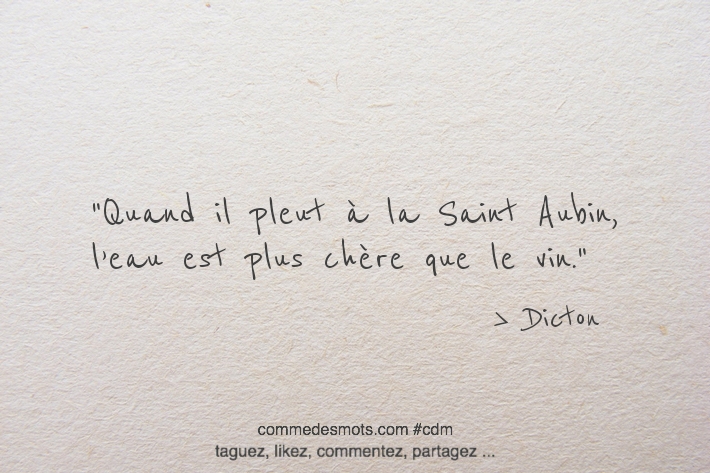 "Quand il pleut à la Saint Aubin,
l'eau est plus chère que le vin."
> Dicton
commedesmots.com #cdm
taguez, likez, commentez, partagez ...